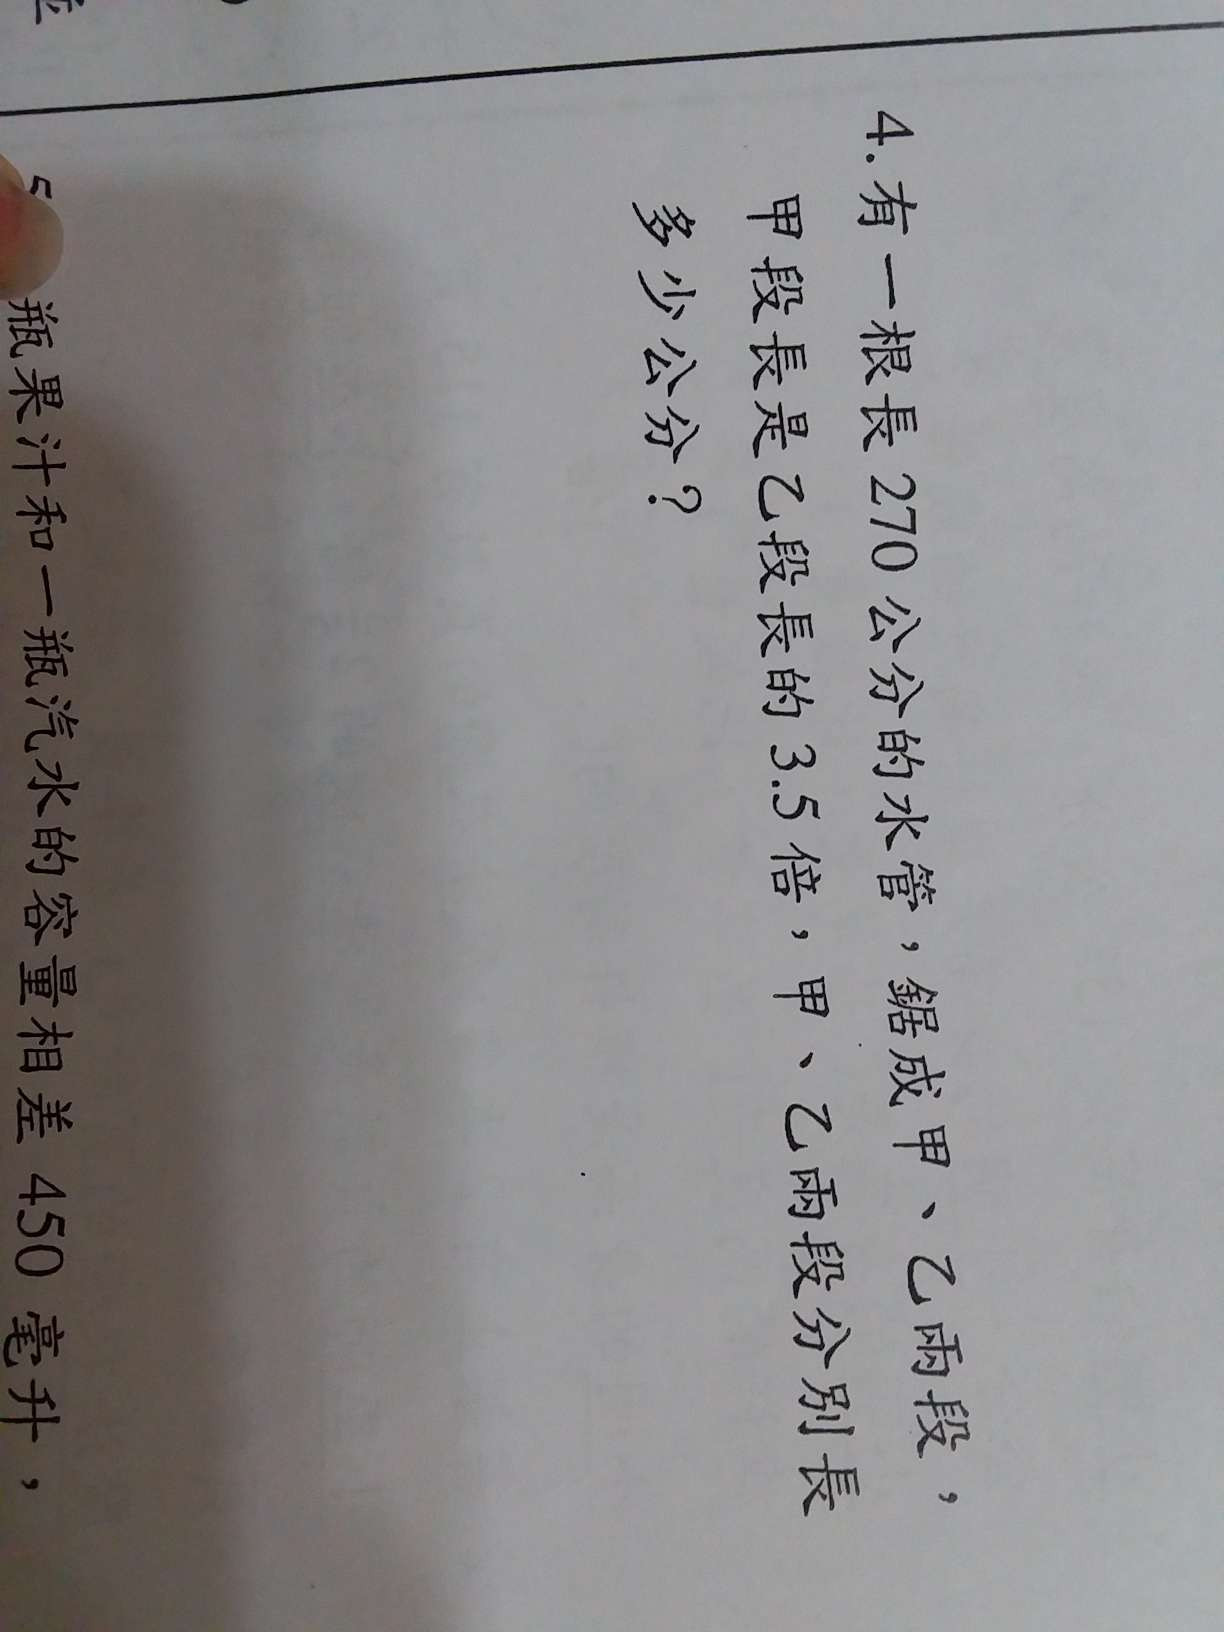 4.有一根長270公分的水管，鋸成甲、乙兩段，
甲段長是乙段長的3.5倍，甲、乙兩段分別長
多少公分？
瓶果汁和一瓶汽水的容量相差 450 毫升，